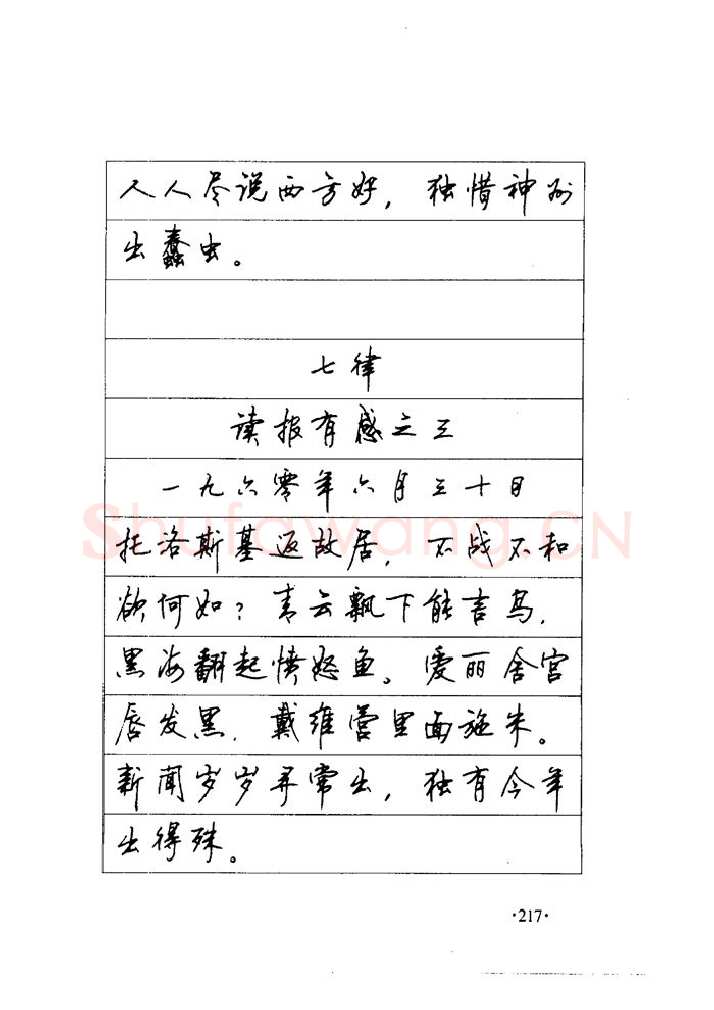 人人尽说西方好，独惜神州
出蠢虫。
七律
读报有感之三
一九六零年六月三十日
托洛斯基返故居，不战不和
欲何如？青云飘下能言鸟，
黑海翻起愤怒鱼。爱丽舍宫
唇发黑，戴维营里面施朱。
新闻岁岁寻常出，独有今年
出得殊。
Shufawang.CN
·217·